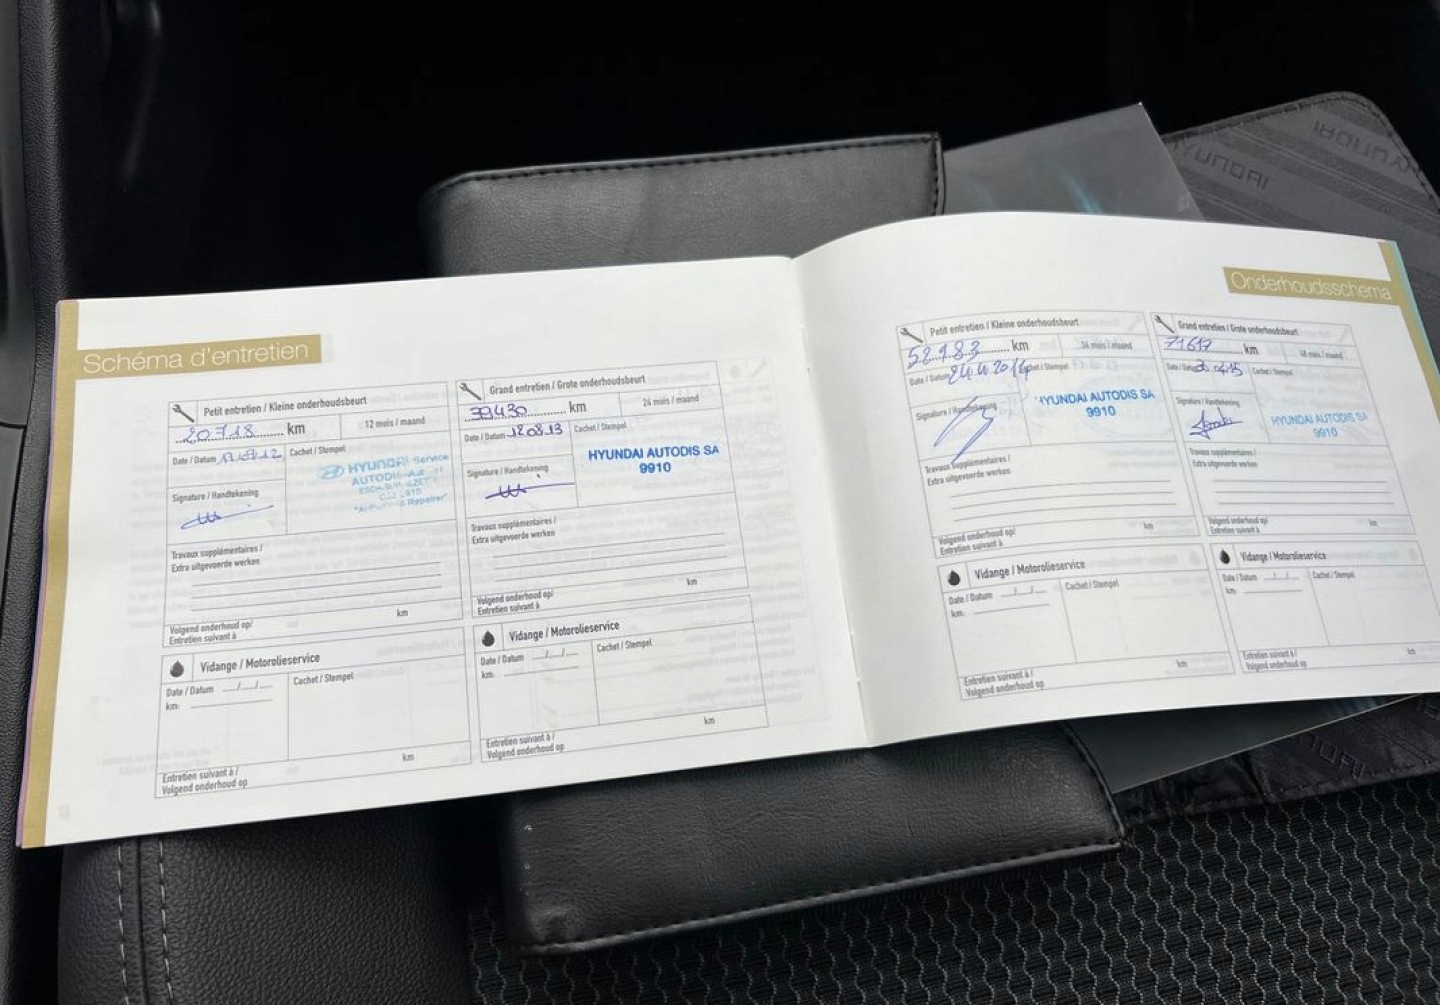 Schéma d'entretien
Petit entretien / Kleine onderhoudsbeurt
20718 km
12 mois / maand
Date / Datum
Cachet / Stempel
HYUNDAI Service
Signature / Handtekening
Travaux supplémentaires /
Extra uitgevoerde werken
km
Volgend onderhoud op/
Entretien suivant à
Vidange / Motorolieservice
Date / Datum __/__/__
Cachet / Stempel
km:
km
Entretien suivant à /
Volgend onderhoud op
Grand entretien / Grote onderhoudsbeurt
39430 km
24 mois / maand
Date / Datum 12.08.13
Cachet / Stempel
HYUNDAI AUTODIS SA
9910
Signature / Handtekening
Travaux supplémentaires /
Extra uitgevoerde werken
km
Volgend onderhoud op/
Entretien suivant à
Vidange / Motorolieservice
Date / Datum __/__/__
Cachet / Stempel
km:
km
Entretien suivant à /
Volgend onderhoud op
Onderhoudsschema
Petit entretien / Kleine onderhoudsbeurt
52983 km
36 mois / maand
Date / Datum
HYUNDAI AUTODIS SA
9910
Signature / Handtekening
Travaux supplémentaires /
Extra uitgevoerde werken
km
Volgend onderhoud op/
Entretien suivant à
Vidange / Motorolieservice
Date / Datum __/__/__
Cachet / Stempel
km:
km
Entretien suivant à /
Volgend onderhoud op
Grand entretien / Grote onderhoudsbeurt
71617 km
48 mois / maand
Cachet / Stempel
HYUNDAI AUTODIS SA
9910
Signature / Handtekening
Travaux supplémentaires /
Extra uitgevoerde werken
km
Volgend onderhoud op/
Entretien suivant à
Vidange / Motorolieservice
Date / Datum __/__/__
Cachet / Stempel
km:
km
Entretien suivant à /
Volgend onderhoud op
HYUNDAI
HYUNDAI